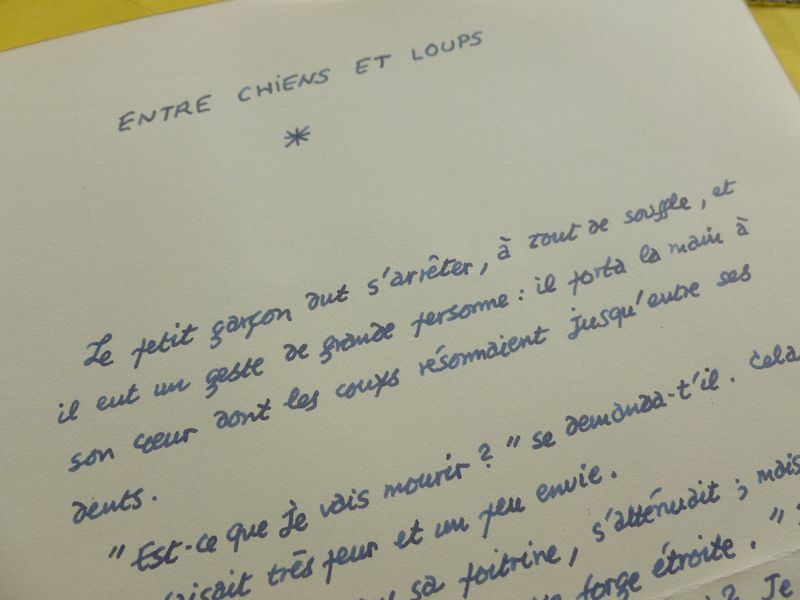 ENTRE CHIENS ET LOUPS
*
Le petit garçon dut s'arrêter, à tout de souffle, et
il eut un geste de grande personne : il porta la main à
son cœur dont les coups résonnaient jusqu'entre ses
dents.
"Est-ce que je vais mourir ?" se demanda-t'il. Cela
faisait très peur et un peu envie.
sa poitrine, s'atténuait ; mais
forge étroite."
? Je